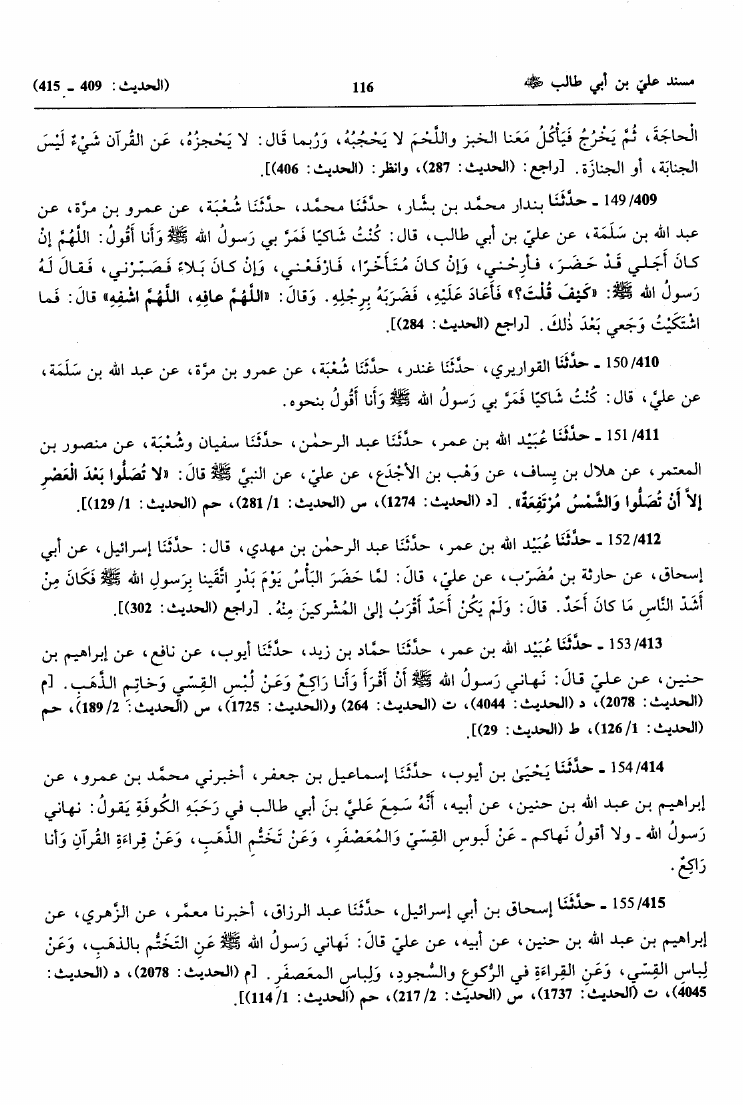 مسند عليّ بن أبي طالب رضي الله عنه 116 (الحديث: 409 ـ 415)
الْحاجَةَ، ثُمَّ يَخْرُجُ فَيَأْكُلُ مَعَنا الخبز واللَّحْمَ لا يَحْجُبُهُ، وَرُبما قَال: لا يَحْجزُهُ، عَن القُرآن شَيْءٌ لَيْسَ
الجنابَة، أو الجنازَة. [راجع: (الحديث: 287)، وانظر: (الحديث: 406)].
149/409 ـ حدَّثَنَا بندار محمَّد بن بشَّار، حدَّثَنَا محمَّد، حدَّثَنَا شُعْبَة، عن عمرو بن مرَّة، عن
عبد الله بن سَلَمَة، عن عليّ بن أبي طالب، قال: كُنْتُ شَاكيًا فَمَرَّ بي رَسولُ الله ﷺ وَأنا أَقُولُ: اللَّهُمَّ إنْ
كَانَ أَجَلي قَدْ حَضَرَ، فـأرِحْني، وَإنْ كانَ مُتَـأَخِّرًا، فـارْفَعْني، وَإنْ كانَ بَـلاءً فَصَبِّرْني، فَـقالَ لَـهُ
رَسولُ الله ﷺ: «كَيْفَ قُلْتَ؟» فَأَعَادَ عَلَيْهِ، فَضَرَبَهُ بِرِجْلِهِ. وَقالَ: «اللَّهُمَّ عافِهِ، اللَّهُمَّ اشْفِهِ» قالَ: فَما
اشْتَكَيْتُ وَجَعي بَعْدَ ذٰلكَ. [راجع (الحديث: 284)].
150/410 ـ حدَّثَنَا القواريري، حدَّثَنَا غندر، حدَّثَنَا شُعْبَة، عن عمرو بن مرَّة، عن عبد الله بن سَلَمَة،
عن عليّ، قال: كُنْتُ شَاكيًا فَمَرَّ بي رَسولُ الله ﷺ وَأنا أَقُولُ بنحوه.
151/411 ـ حدَّثَنَا عُبَيْد الله بن عمر، حدَّثَنَا عبد الرحمٰن، حدَّثَنَا سفيان وشُعْبَة، عن منصور بن
المعتمر، عن هلال بن يساف، عن وَهْب بن الأجْدَع، عن عليّ، عن النبيِّ ﷺ قالَ: «لا تُصَلُّوا بَعْدَ الْعَصْرِ
إلاَّ أَنْ تُصَلُّوا وَالشَّمْسُ مُرْتَفِعَةٌ». [د (الحديث: 1274)، س (الحديث: 1/281)، حم (الحديث: 1/129)].
152/412 ـ حدَّثَنَا عُبَيْد الله بن عمر، حدَّثَنَا عبد الرحمٰن بن مهدي، قال: حدَّثَنَا إسرائيل، عن أبي
إسحاق، عن حارثة بن مُضَرّب، عن عليّ، قالَ: لَمَّا حَضَرَ البَأْسُ يَوْمَ بَدْرٍ اتَّقَينا بِرَسولِ الله ﷺ فَكَانَ مِنْ
أَشَدِّ النَّاسِ مَا كانَ أَحَدٌ. قالَ: وَلَمْ يَكُنْ أَحَدٌ أَقْرَبُ إلىٰ المُشْركينَ مِنْهُ. [راجع (الحديث: 302)].
153/413 ـ حدَّثَنَا عُبَيْد الله بن عمر، حدَّثَنَا حمَّاد بن زيد، حدَّثَنَا أيوب، عن نافع، عن إبراهيم بن
حنين، عن عليّ قالَ: نَهاني رَسولُ الله ﷺ أَنْ أَقْرَأَ وَأَنا رَاكِعٌ وَعَنْ لُبْسِ القِسِّي وَخاتِمِ الذَّهَبِ. [م
(الحديث: 2078)، د (الحديث: 4044)، ت (الحديث: 264) و(الحديث: 1725)، س (الحديث: 2/189)، حم
(الحديث: 1/126)، ط (الحديث: 29)].
154/414 ـ حدَّثَنَا يَحْيَىٰ بن أيوب، حدَّثَنَا إسماعيل بن جعفر، أخبرني محمَّد بن عمرو، عن
إبراهيم بن عبد الله بن حنين، عن أبيه، أَنَّهُ سَمِعَ عَليَّ بنَ أبي طالب في رَحَبَةِ الكوفَةِ يَقولُ: نهاني
رَسولُ الله ـ ولا أقولُ نَهاكم ـ عَنْ لَبوسِ القِسّي وَالمُعَصْفَرِ، وَعَنْ تَخَتُّمِ الذَّهَبِ، وَعَنْ قِراءَةِ القُرآنِ وَأنا
رَاكِعٌ.
155/415 ـ حدَّثَنَا إسحاق بن أبي إسرائيل، حدَّثَنَا عبد الرزاق، أخبرنا معمَّر، عن الزَّهري، عن
إبراهيم بن عبد الله بن حنين، عن أبيه، عن عليّ قالَ: نَهاني رَسولُ الله ﷺ عَنِ التَخَتُّم بالذَهَبِ، وَعَنْ
لِباسِ القِسِّي، وَعَنِ القِراءَةِ في الرُّكوعِ والسُّجودِ، وَلِباسِ المعَصفَرِ. [م (الحديث: 2078)، د (الحديث:
4045)، ت (الحديث: 1737)، س (الحديث: 2/217)، حم (الحديث: 1/114)].